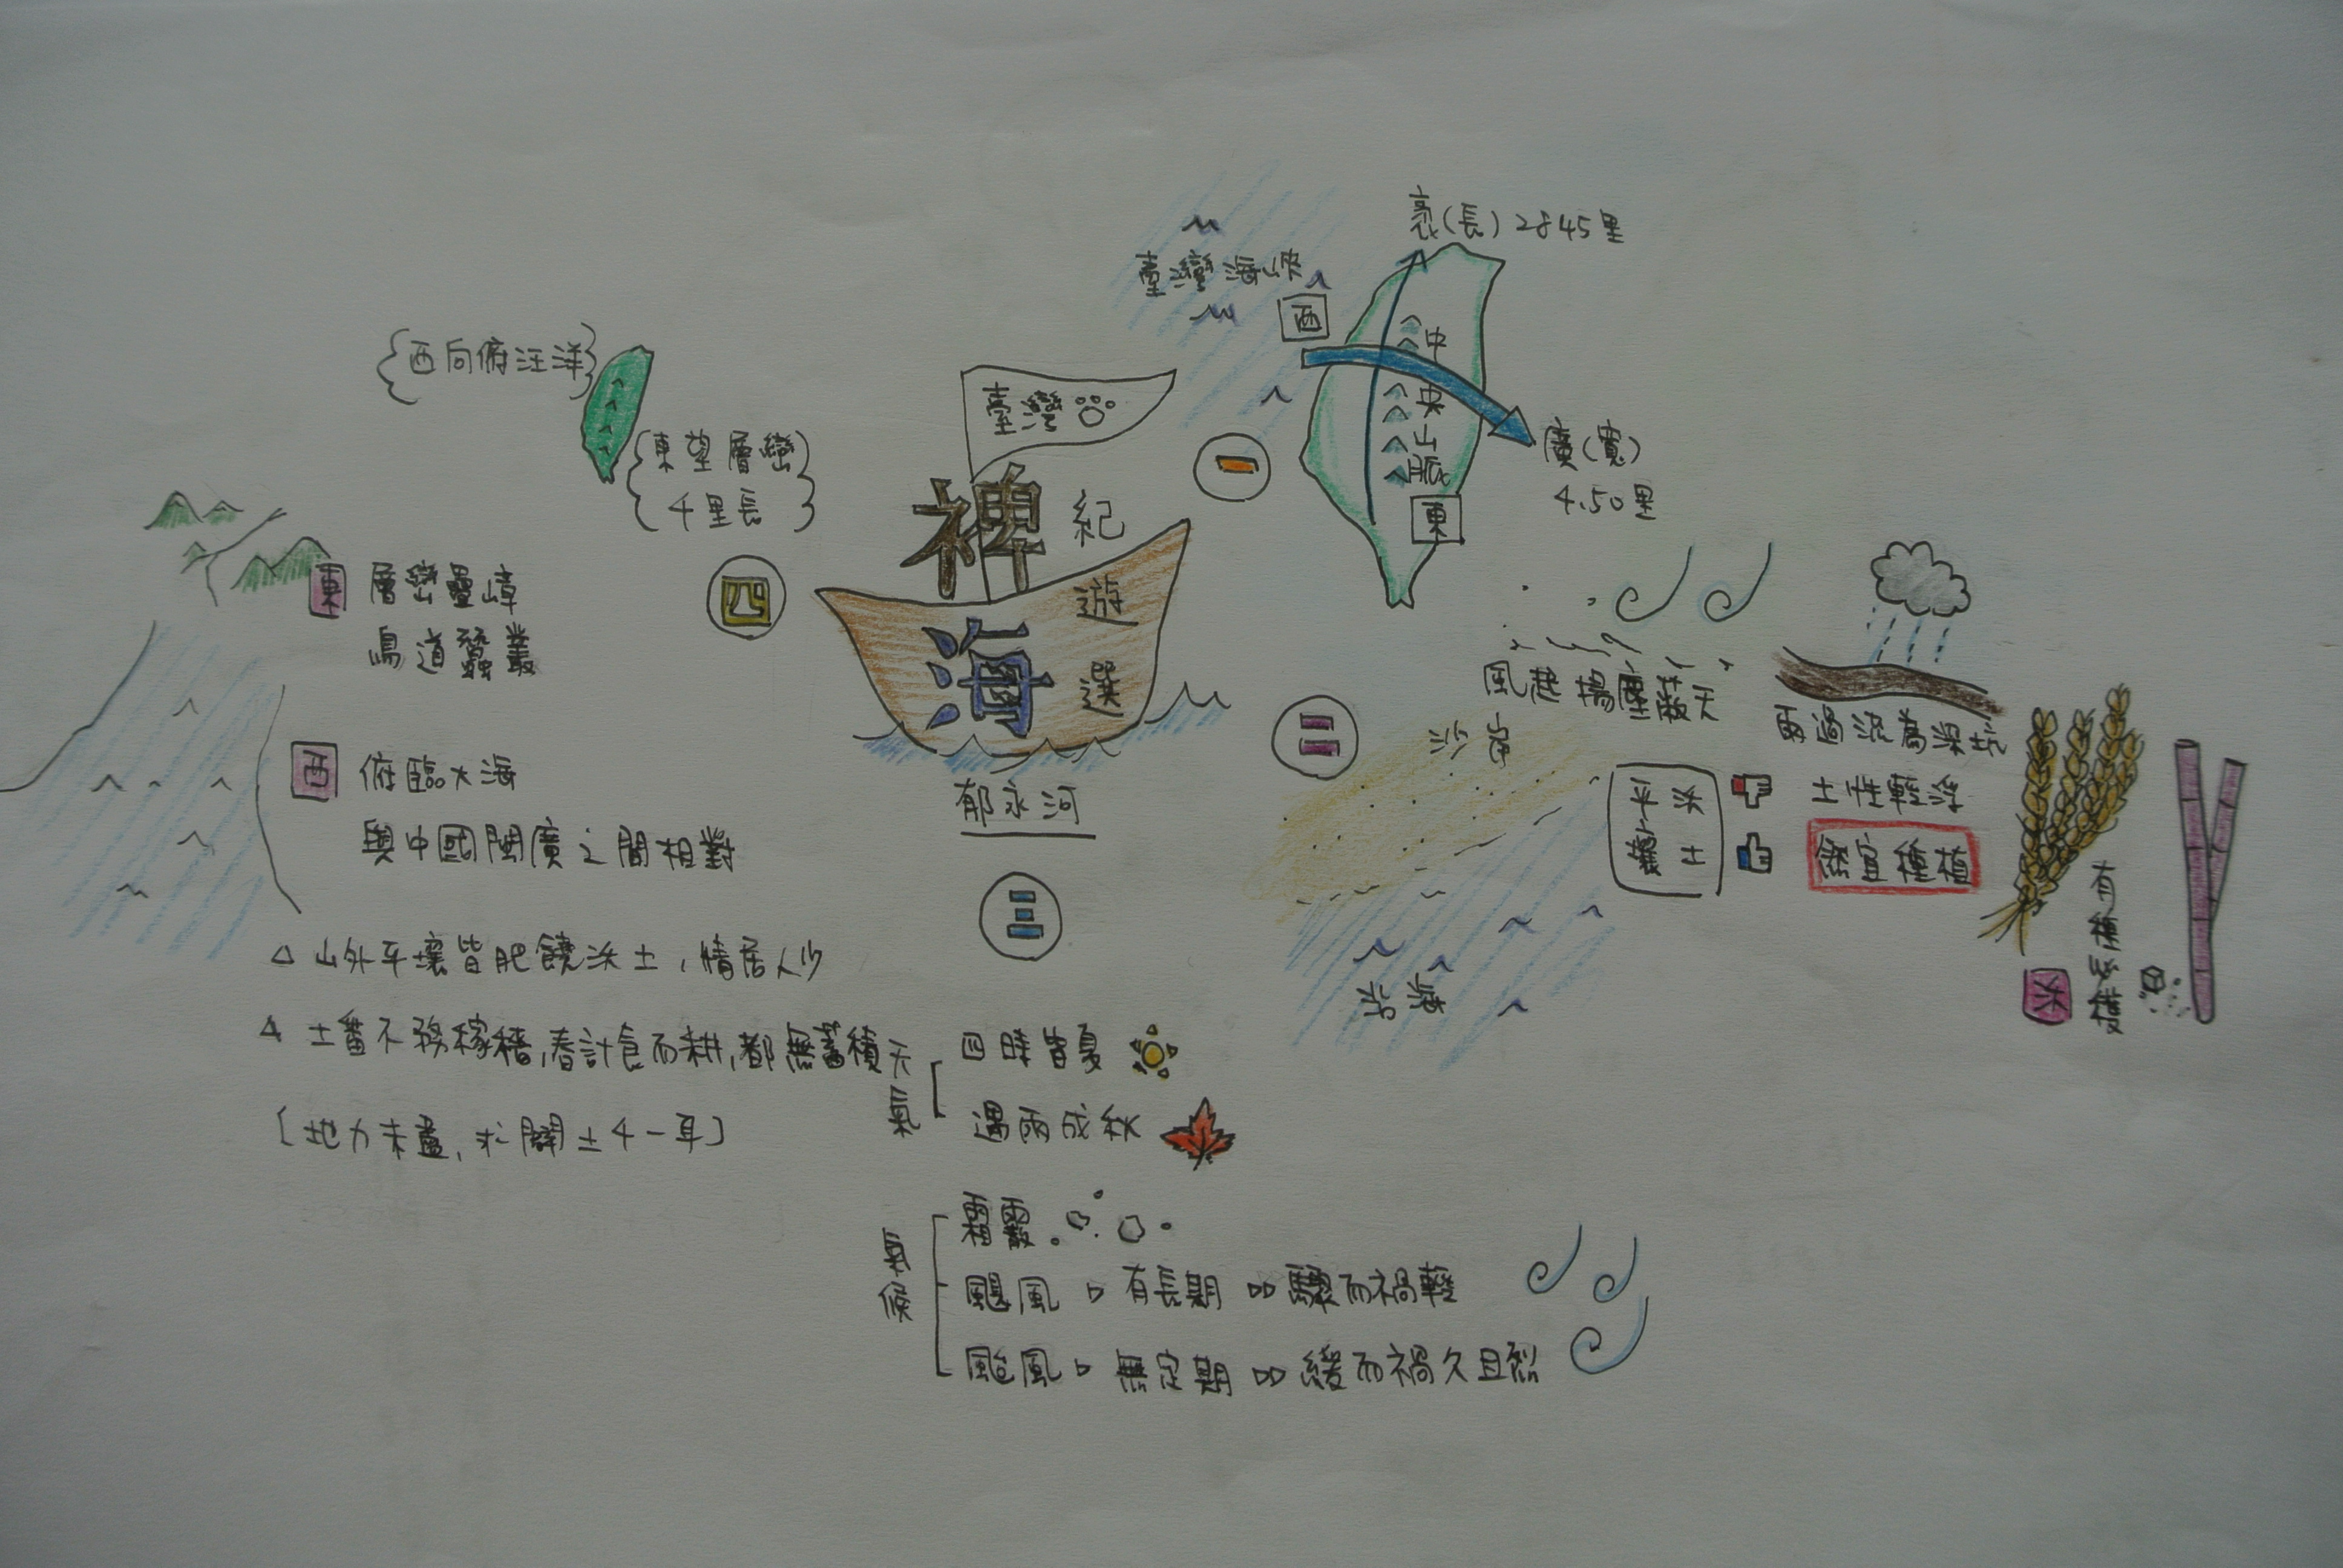 臺灣
裨海
紀遊選
郁永河
一
臺灣海峽
西
袤(長)2845里
中央山脈
東
廣(寬)
4.50里
二
風起揚塵蔽天
沙
沿海
雨過流為深坑
平沃
土
土性輕浮
無宜種植
沃
有種必穫
三
天氣
四時皆夏
遇雨成秋
氣候
霜霰
颶風 有長期 驟而禍輕
颱風 無定期 緩而禍久且烈
四
西向俯汪洋
東望層巒
千里長
東 層巒疊嶂
鳥道蠶叢
西 俯臨大海
與中國閩廣之間相對
山外平壤皆肥饒沃土,惜居人少
土番不務稼穡,舂計食而耕,都無蓄積
[地力未盡,求闢土千一耳]